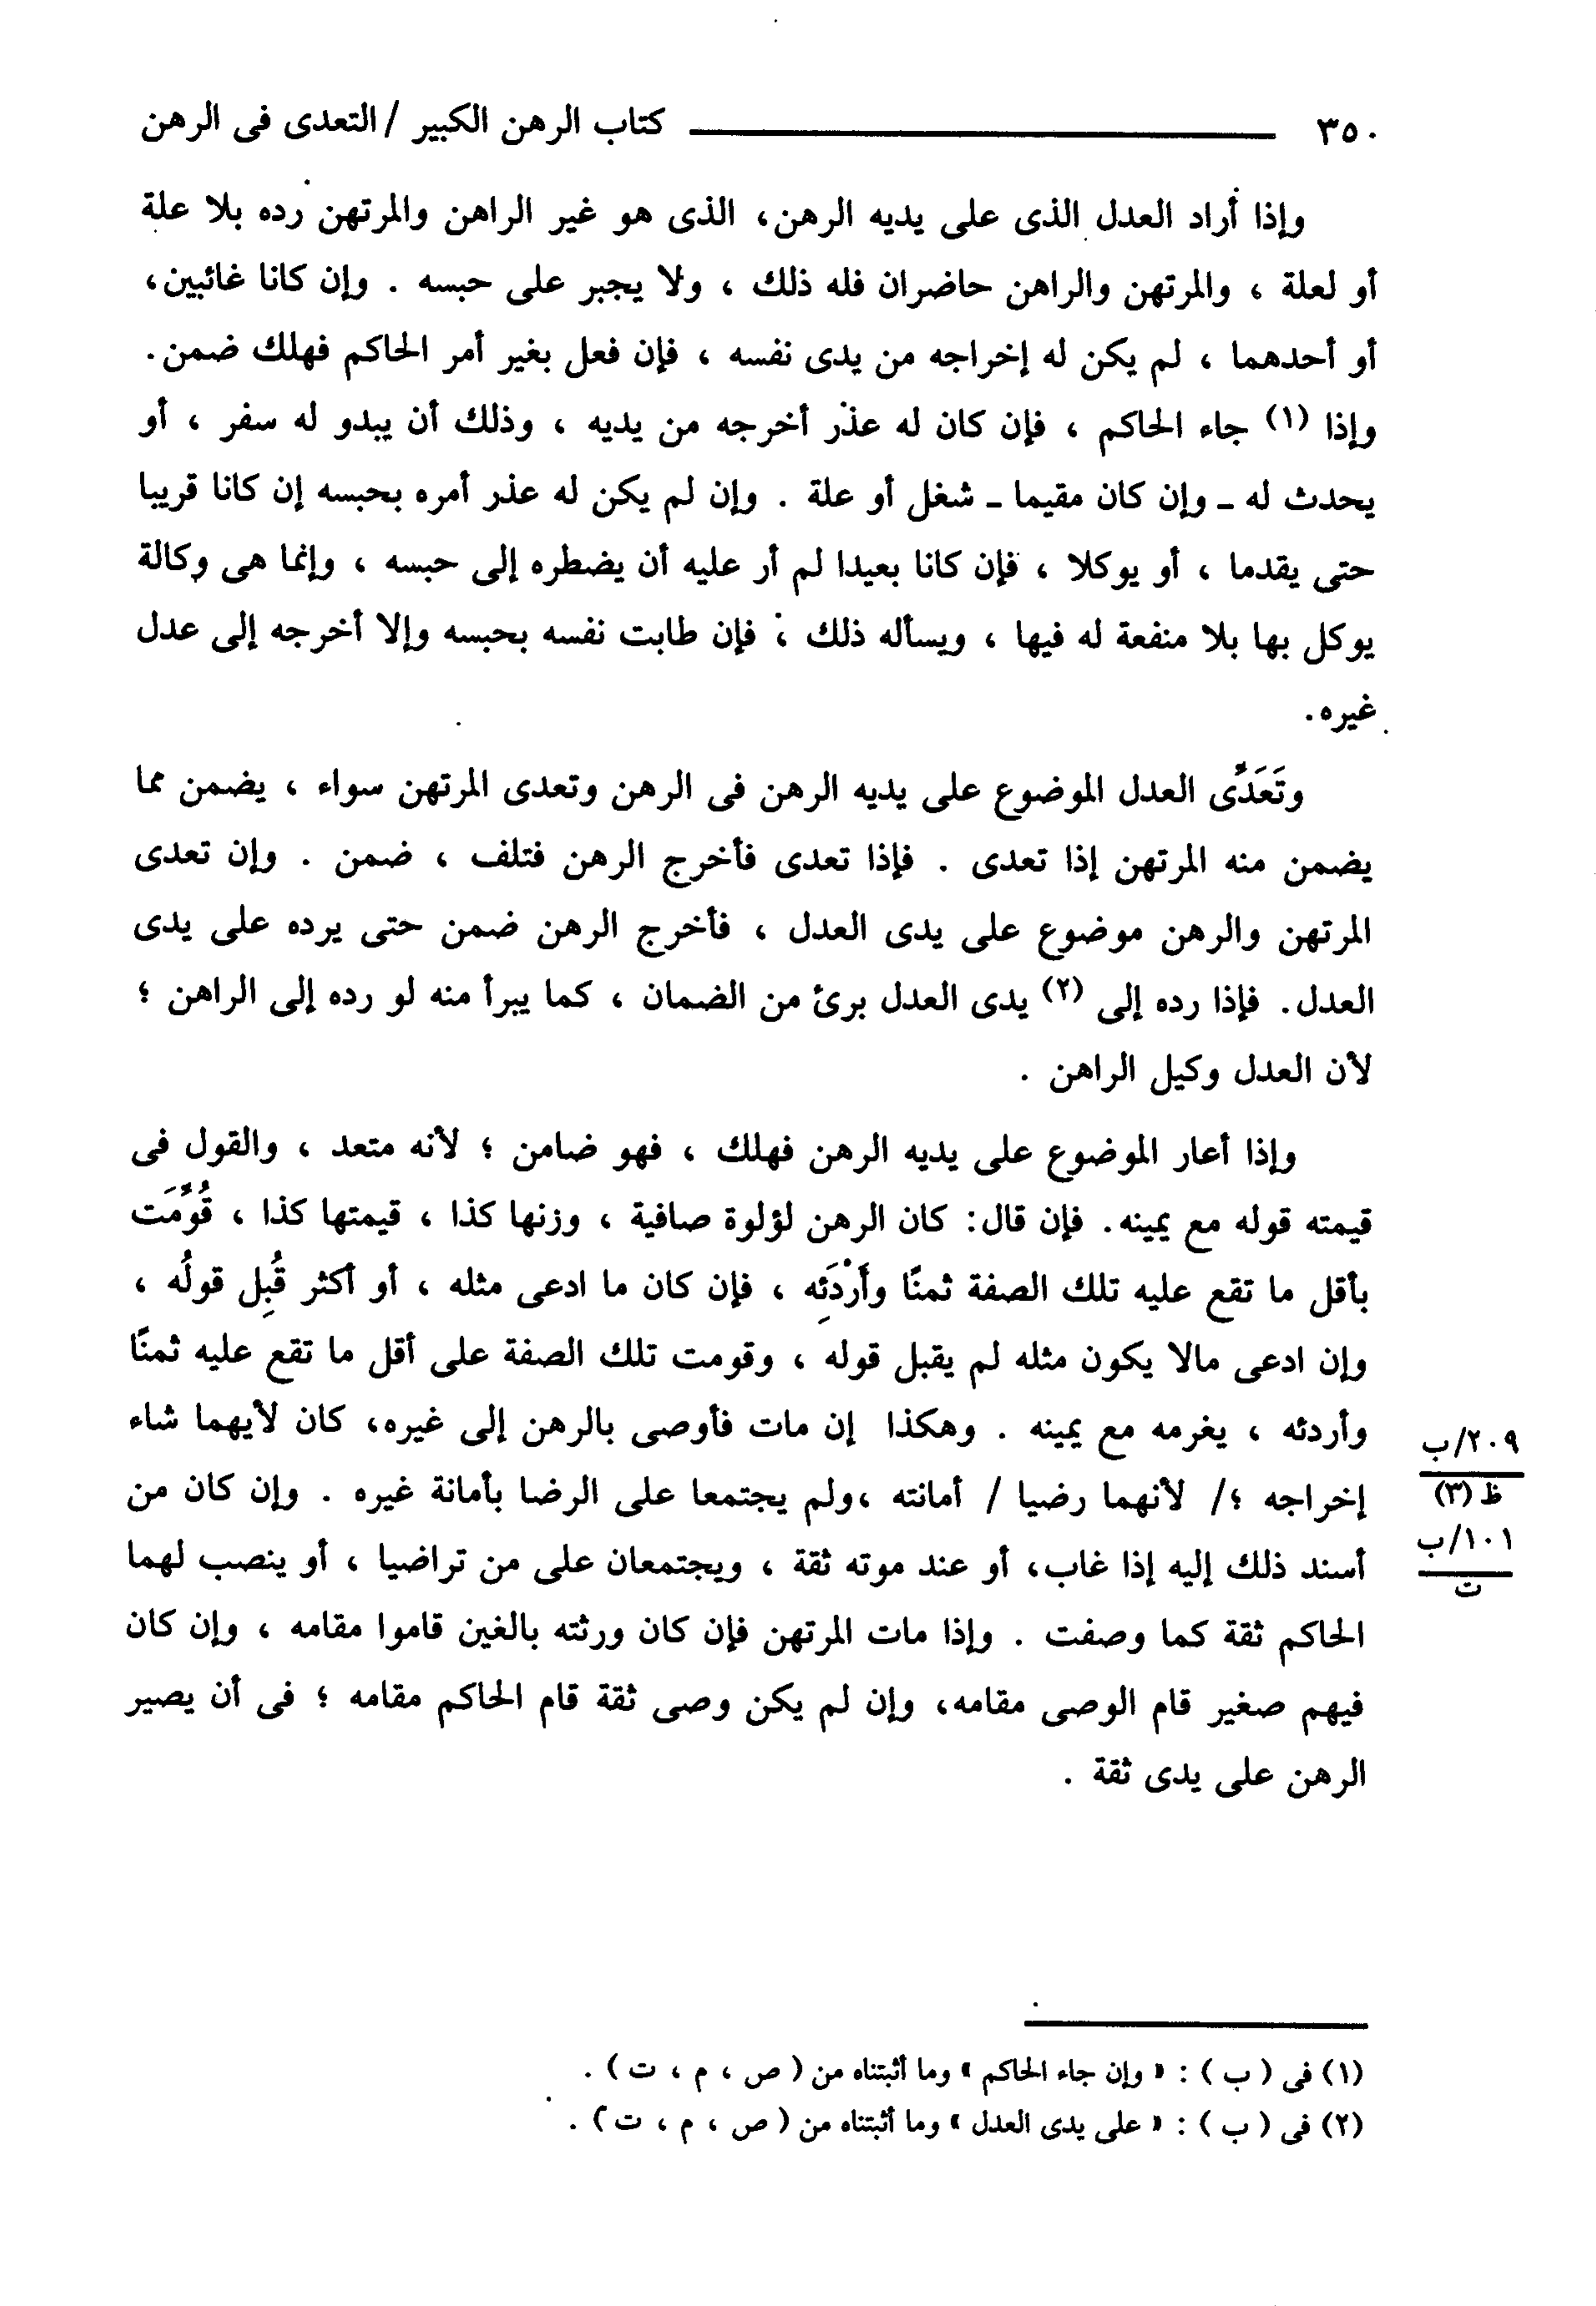 ٣٥٠ كتاب الرهن الكبير / التعدى فى الرهن
وإذا أراد العدل الذى على يديه الرهن، الذى هو غير الراهن والمرتهن رده بلا علة
أو لعلة ، والمرتهن والراهن حاضران فله ذلك ، ولا يجبر على حبسه . وإن كانا غائبين،
أو أحدهما ، لم يكن له إخراجه من يدى نفسه ، فإن فعل بغير أمر الحاكم فهلك ضمن.
وإذا (١) جاء الحاكم ، فإن كان له عذر أخرجه من يديه ، وذلك أن يبدو له سفر ، أو
يحدث له ـ وإن كان مقيما ـ شغل أو علة . وإن لم يكن له عذر أمره بحبسه إن كانا قريبا
حتى يقدما ، أو يوكلا ، فإن كانا بعيدا لم أر عليه أن يضطره إلى حبسه ، وإنما هى وكالة
يوكل بها بلا منفعة له فيها ، ويسأله ذلك ، فإن طابت نفسه بحبسه وإلا أخرجه إلى عدل
غيره.
وتَعَدِّى العدل الموضوع على يديه الرهن فى الرهن وتعدى المرتهن سواء ، يضمن مما
يضمن منه المرتهن إذا تعدى . فإذا تعدى فأخرج الرهن فتلف ، ضمن . وإن تعدى
المرتهن والرهن موضوع على يدى العدل ، فأخرج الرهن ضمن حتى يرده على يدى
العدل. فإذا رده إلى (٢) يدى العدل برئ من الضمان ، كما يبرأ منه لو رده إلى الراهن ؛
لأن العدل وكيل الراهن .
وإذا أعار الموضوع على يديه الرهن فهلك ، فهو ضامن ؛ لأنه متعد ، والقول فى
قيمته قوله مع يمينه. فإن قال: كان الرهن لؤلوة صافية ، وزنها كذا ، قيمتها كذا ، قُوِّمَت
بأقل ما تقع عليه تلك الصفة ثمنًا وأَرْدَئِه ، فإن كان ما ادعى مثله ، أو أكثر قُبِل قولُه ،
وإن ادعى مالا يكون مثله لم يقبل قوله ، وقومت تلك الصفة على أقل ما تقع عليه ثمنًا
وأردئه ، يغرمه مع يمينه . وهكذا إن مات فأوصى بالرهن إلى غيره، كان لأيهما شاء
إخراجه ؛/ لأنهما رضيا / أمانته ،ولم يجتمعا على الرضا بأمانة غيره . وإن كان من
أسند ذلك إليه إذا غاب، أو عند موته ثقة ، ويجتمعان على من تراضيا ، أو ينصب لهما
الحاكم ثقة كما وصفت . وإذا مات المرتهن فإن كان ورثته بالغين قاموا مقامه ، وإن كان
فيهم صغير قام الوصى مقامه، وإن لم يكن وصى ثقة قام الحاكم مقامه ؛ فى أن يصير
الرهن على يدى ثقة .
٢٠٩/ب
ظ (٣)
١٠١/ب
ت
(١) فى ( ب ) : « وإن جاء الحاكم » وما أثبتناه من ( ص ، م ، ت ) .
(٢) فى ( ب ) : « على يدى العدل » وما أثبتناه من ( ص ، م ، ت ) .